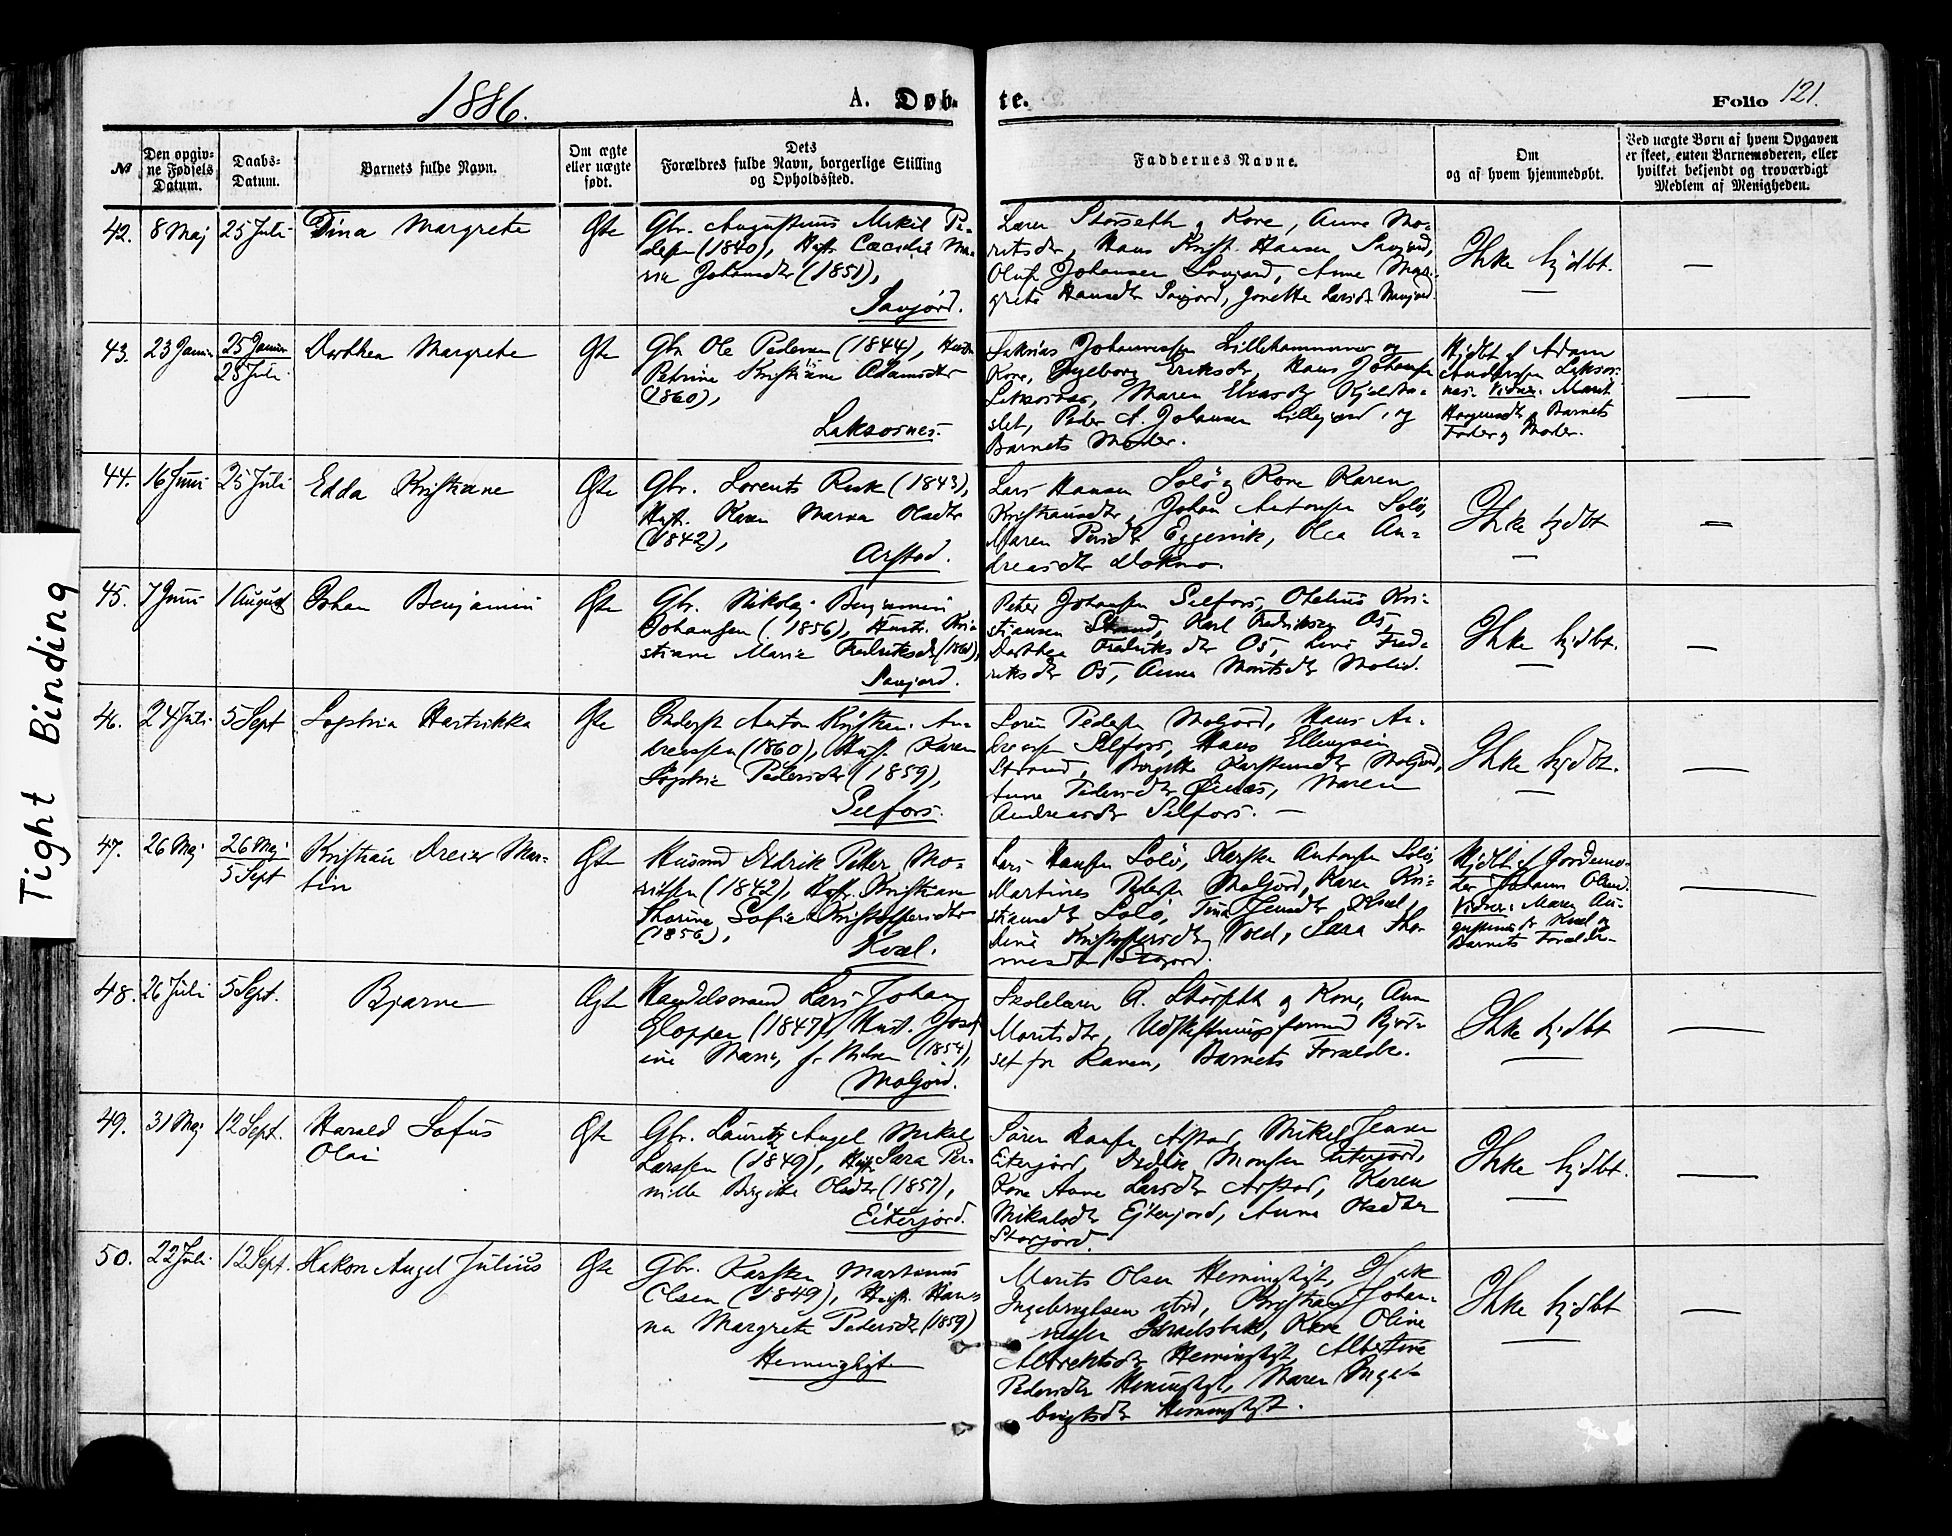 1886.
A. Døb-
te.
Folio 121.
№
Den opgiv-
ne Fødsels
Datum.
Daabs-
Datum.
Barnets fulde Navn.
Om ægte
eller uægte
født.
Dets
Forældres fulde Navn, borgerlige Stilling
og Opholdssted.
Faddernes Navne.
Om
og af hvem hjemmedøbt.
Ved uægte Børn af hvem Opgaven
er skeet, enten Barnemoderen, eller
hvilket bekjendt og troværdigt
Medlem af Menigheden.
42. 8 Maj 25 Juli Dina Margrete Ægte
Gbr. Augustinus Mikal Pe-
dersen (1840), Hustr.
(1851),
Savjord.
Storseth og Kone, Anne Mo-
ritsdr, Hans Krist. Hansen Savjord,
Oluf Johansen Savjord, Anne Mar-
grete Hansdtr Savjord, Jonette Larsdtr
Ikke hjdbt.
—
43. 23 Januar 25 Januar
25 Juli
Dorthea Margrete Ægte
Gbr Ole Pedersen (1844), Hustru
Petrine Kristiane Adamsdtr
(1860),
Laksosnes.
Johannessen Lillehammer og
Kone, Ingeborg Eriksdr, Hans Johansen
Laksosnes, Maren
Peder A. Johansen og
Barnets Moder.
Hjdbt af Adam
Andersen Laksos-
nes. Vidner: Marit
og Barnets
Fader og Moder.
—
44. 16 Juni 25 Juli Edda Kristiane Ægte
Gbr. Lorents Risk (1843),
Hustr. Karen Maria Olsdtr
(1842),
Arstad.
Lars Hansen Solø og Kone Karen
Kristiansdtr, Johan Antonsen Solø,
Maren Persdtr Eggesvik, Olea An-
dreasdtr
Ikke hjdbt
—
45. 7 Juni 1 August Johan Benjamin Ægte
Gbr. Nikolaj Benjamin
Johansen (1856), Hustr. Kri-
stiane Marie Fredriksdtr (1860),
Savjord.
Peter Johansen Selfors, Otelius Kri-
stiansen Strand, Karl Fredriksen Os,
Dorthea Fredriksdtr Os, Line Fred-
riksdtr Os, Anna Moritsdtr
Ikke hjdbt.
—
46. 24 Juli 5 Sept Sophia Hartvikka Ægte
Inderst Anton Kristian An-
dreassen (1860), Hustr. Karen
Sophie Pedersdtr (1859),
Selfors.
Søren Pedersen Moljord, Hans An-
dreassen Selfors, Hans Ellingsen
Strand, Birgitte Karstensdtr Moljord,
Anne Pedersdtr Øinæs, Maren
Andreasdtr Selfors. —
Ikke hjdbt.
—
47. 26 Maj 26 Maj
5 Sept
Kristian Dreier Mar-
tin
Ægte
Husmd Didrik Petter Mo-
ritsen (1842), Hustr. Kristiane
Thorine Sofie Kristoffersdtr
(1856),
Kvæl.
Lars Hansen Solø, Karsten Antonsen Solø,
Martines Pedersen Moljord, Karen Kri-
stiansdtr Solø, Tina Jensdtr Kvæl,
Line Kristoffersdtr Sara Tho-
masdtr Storjord.
Hjdbt af Jordemo-
der Johanna Olsd.
Vidner: Maren Au-
Kvæl og
Barnets Forældre
—
48. 26 Juli 5 Sept. Bjarne Ægte
Handelsmand Lars Johan
Glopper (1847), Hust. Josef-
ine Marie, f. Nilsen (1854),
Moljord.
Skolelærer A. Storseth og Kone Ann
Moritsdtr, Udskiftningsformd
set fra Ranen, Barnets Forældre.
Ikke hjdbt
—
49. 31 Maj 12 Sept. Harald Sofus
Olai
Ægte
Gbr. Lauritz Angel Mikal
Larssen (1849), Hustr. Sara Per-
nille Birgitte Olsdtr (1857),
Eiterjord.
Søren Hansen Arstad, Mikal Jensen
Eiterjord, Didrik Monsen Eiterjord,
Kone Anne Larsdtr Arstad, Karen
Mikalsdtr Ejterjord, Anna Olsdtter
Storjord.
Ikke hjdbt.
—
50. 22 Juli 12 Sept. Hakon Angel Julius Ægte
Gbr. Karsten Martinus
Olsen (1849), Hustr. Han-
na Margrete Pedersdtr (1859)
Hemingligt
Morits Olsen Hemingligt,
Ingebrigtsen ibid, Kristian Johan-
nessen Israelsbak, Kone Oline
Albriktsdtr Hemingligt, Albertine
Pedersdtr Hemingligt, Maren Inge-
brigtsdtr Hemingligt.
Ikke hjdbt
—
Tight Binding